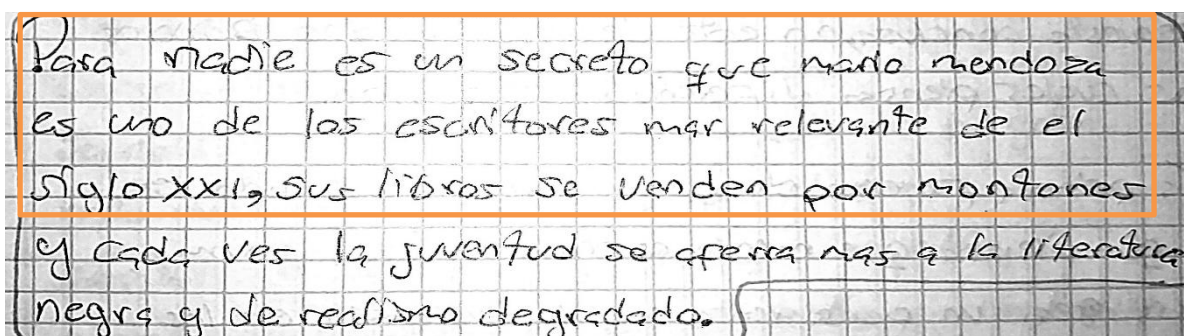 Para nadie es un secreto que mario mendoza
es uno de los escritores mas relevante de el
siglo XXI, sus libros se venden por montones
y cada ves la juventud se aferra mas a la literatura
negra y de realismo degradado.